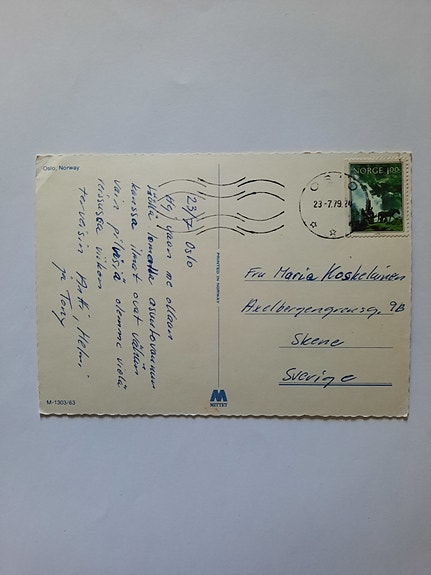 Oslo, Norway
23/7 Oslo
Hei, vaan me ollaan
täällä lomalla asuntovaunun
kanssa ilmat ovat vähän
vain pilvisiä olemme vielä
reissussa viikon
terveisin Antti, Helmi
ja Tony
M-1303/63
PRINTED IN NORWAY
M
MITTET
OSLO
23 -7.79.
NORGE 1,00
Fru Maria Koskelainen
9B
Skene
Sverige